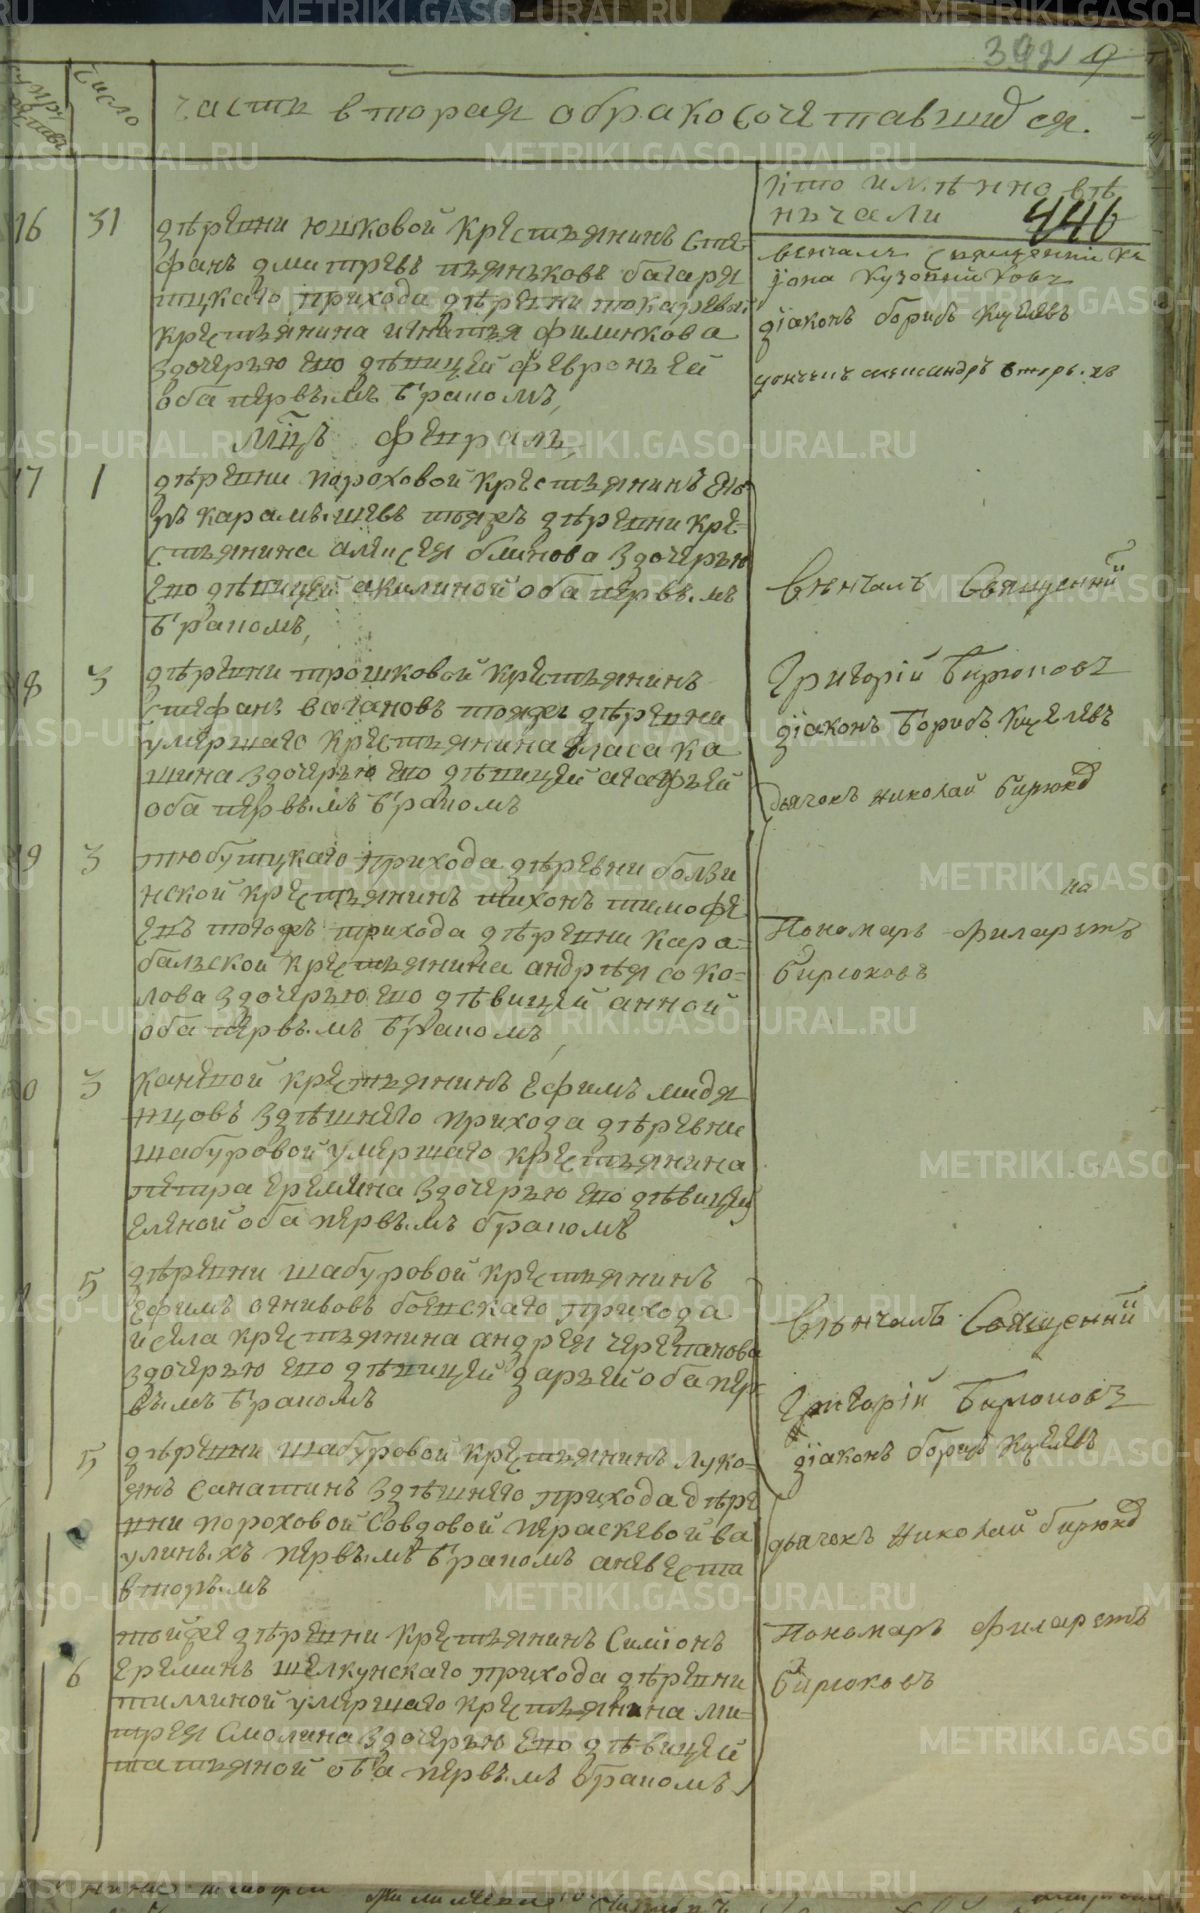 392 9
число
часть вторая обракосочетавшихся.
кто имѣнно вѣ
нъчали
446
16 31 дѣревни юшковой крестьянинъ сте
фанъ дмитревъ пьянъковъ багаря
цкаго прихода дѣревни токаревы
крестьянина игнатья филинкова
здочерью ево дѣвицей февроньей
оба первымъ бракомъ,
венчалъ священникъ
иона
діаконъ борисъ
александръ
мцъ февраль,
17 1 дѣревни пороховой крестьянинъ
карамышевъ тояже дѣревни кре-
стьянина алексея блинова здочерью
ево дѣвицей акилиной оба первымъ
бракомъ,
Вѣнчалъ Священникъ
18 3 дѣревни трошковой крестьянинъ
стефанъ вагановъ тояже дѣревни
умершаго крестьянина власа ка
шина здочерью ево дѣвицей агафьей
оба первымъ бракомъ
Григорій Бирюковъ
діаконъ Борисъ
дьячокъ николай бирюков
19 3 тюбуцкаго прихода дѣревни болзи
нской крестьянинъ тихонъ тимофе
евъ тогожъ прихода дѣревни кара-
бальской крестьянина андрѣя соко-
лова здочерью ево дѣвицей анной
оба первымъ бракомъ,
Пономарь филаретъ
бирюковъ
0 3 каневой крестьянинъ ефимъ медя
нцовъ здѣшнего прихода дѣревни
шабуровой умершаго крестьянина
петра еремина здочерью ево дѣвицей
еленой оба первымъ бракомъ
5 дѣревни шабуровой крестьянинъ
ефимъ огнивовъ боевскаго прихода
и села крестьянина андрея черепанова
здочерью ево дѣвицей дарьей оба пер
вымъ бракомъ
Вѣнчалъ Священникъ
Григорій Бирюковъ
діаконъ борисъ
5 дѣревни шабуровой крестьянинъ луко-
янъ санатинъ здѣшнего прихода дѣре
вни пороховой совдовой параскевой ва
улиныхъ первымъ бракомъ аневеста
вторымъ
дьячокъ николай бирюков
6 тойже дѣревни крестьянинъ Симіонъ
ереминъ щелкунскаго прихода дѣревни
тиминой умершаго крестьянина ми-
трея Смолина здочерью ево дѣвицей
татьяной оба первымъ бракомъ
Пономарь Филаретъ
бирюковъ
METRIKI.GASO-URAL.RU